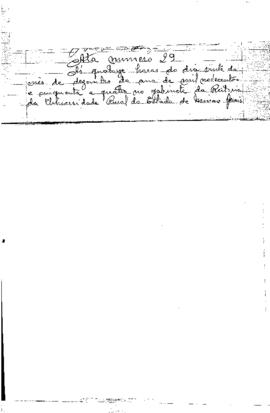 Ata número 29
Às quatorze horas do dia vinte do
mês de dezembro do ano de mil novecentos
e cinquenta e quatro no gabinete da Reitoria
da Universidade Rural do Estado de Minas Gerais